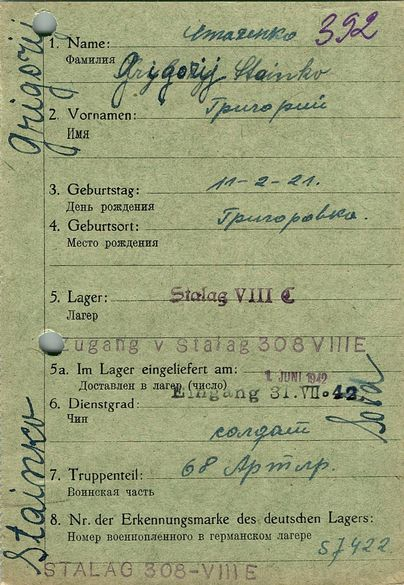 Grigorij
392
1. Name:
Фамилия
Grigorij Stainko
2. Vornamen: Григорий
Имя
3. Geburtstag: 11-2-21.
День рождения
4. Geburtsort: Григоровка.
Место рождения
5. Lager: Stalag VIII C
Лагер
Zugang v Stalag 308 VIII E
5a. Im Lager eingeliefert am: 1. JUNI 1942
Доставлен в лагер (число) Eingang 31. VII. 42.
6. Dienstgrad:
Чин солдат
7. Truppenteil: 68 Арт.
Воинская часть
8. Nr. der Erkennungsmarke des deutschen Lagers:
Номер военнопленного в германском лагере
57422
STALAG 308-VIII E
Stainko